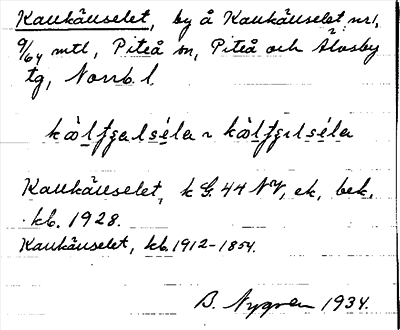 Kaukäuselet, by å Kaukäuselet nr 1,
9/64 mtl, Piteå sn, Piteå och Älvsby
tg, Norrb. l.
Kaukäuselet, k G. 44 NV, ek., bek.
kb. 1928.
Kaukäuselet, kb. 1912-1854.
B. Nygren 1934.